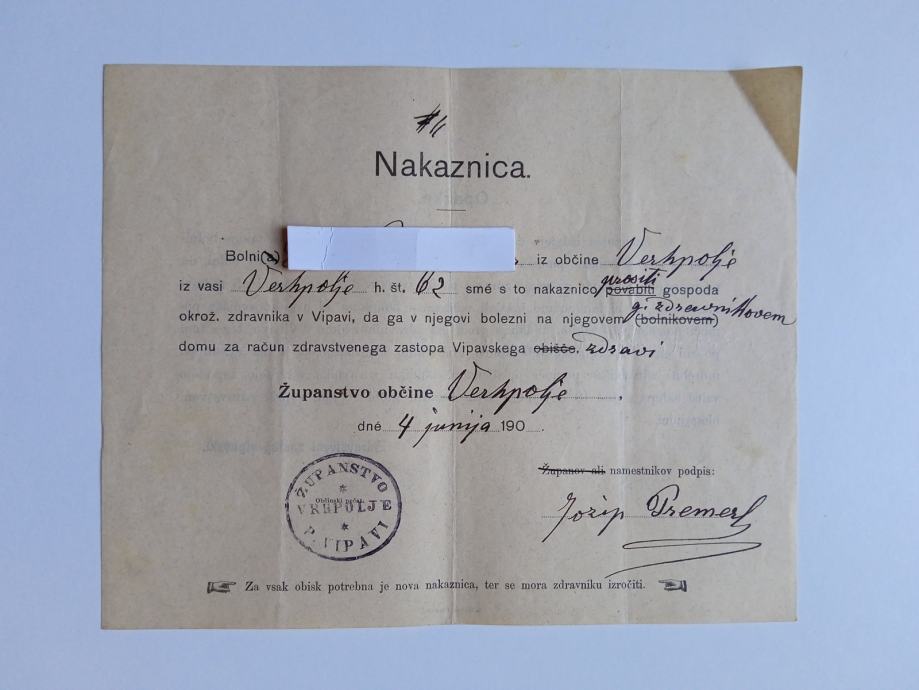 Nakaznica.
Bolni(a) iz občine Verhpolje
iz vasi Verhpolje h. št. 62 smé s to nakaznico povabiti prositi gospoda
okrož. zdravnika v Vipavi, da ga v njegovi bolezni na njegovem (bolnikovem) g. zdravnikovem
domu za račun zdravstvenega zastopa Vipavskega obišče. zdravi
Županstvo občine Verhpolje.
dné 4 junija 190
Županov ali namestnikov podpis:
Jožip Premerl
ŽUPANSTVO
Občinski pečat
VRHPOLJE
P. VIPAVI
Za vsak obisk potrebna je nova nakaznica, ter se mora zdravniku izročiti.